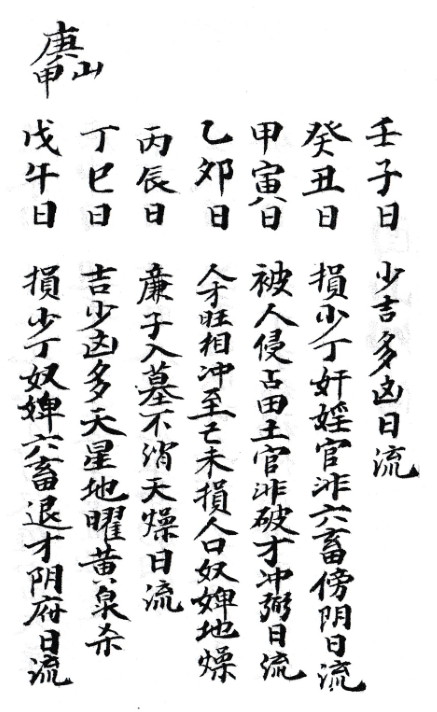 壬子日 少吉多凶日流
癸丑日 損少丁奸婬官非六畜傍阴日流
甲寅日 被人侵占田土官非破才冲弼日流
乙卯日 人才旺相冲至己未損人口奴婢地燥
丙辰日 廉子入墓不消天燥日流
丁巳日 吉少凶多天星地曜黄泉杀
戊午日 損少丁奴婢六畜退才阴府日流
庚山
甲